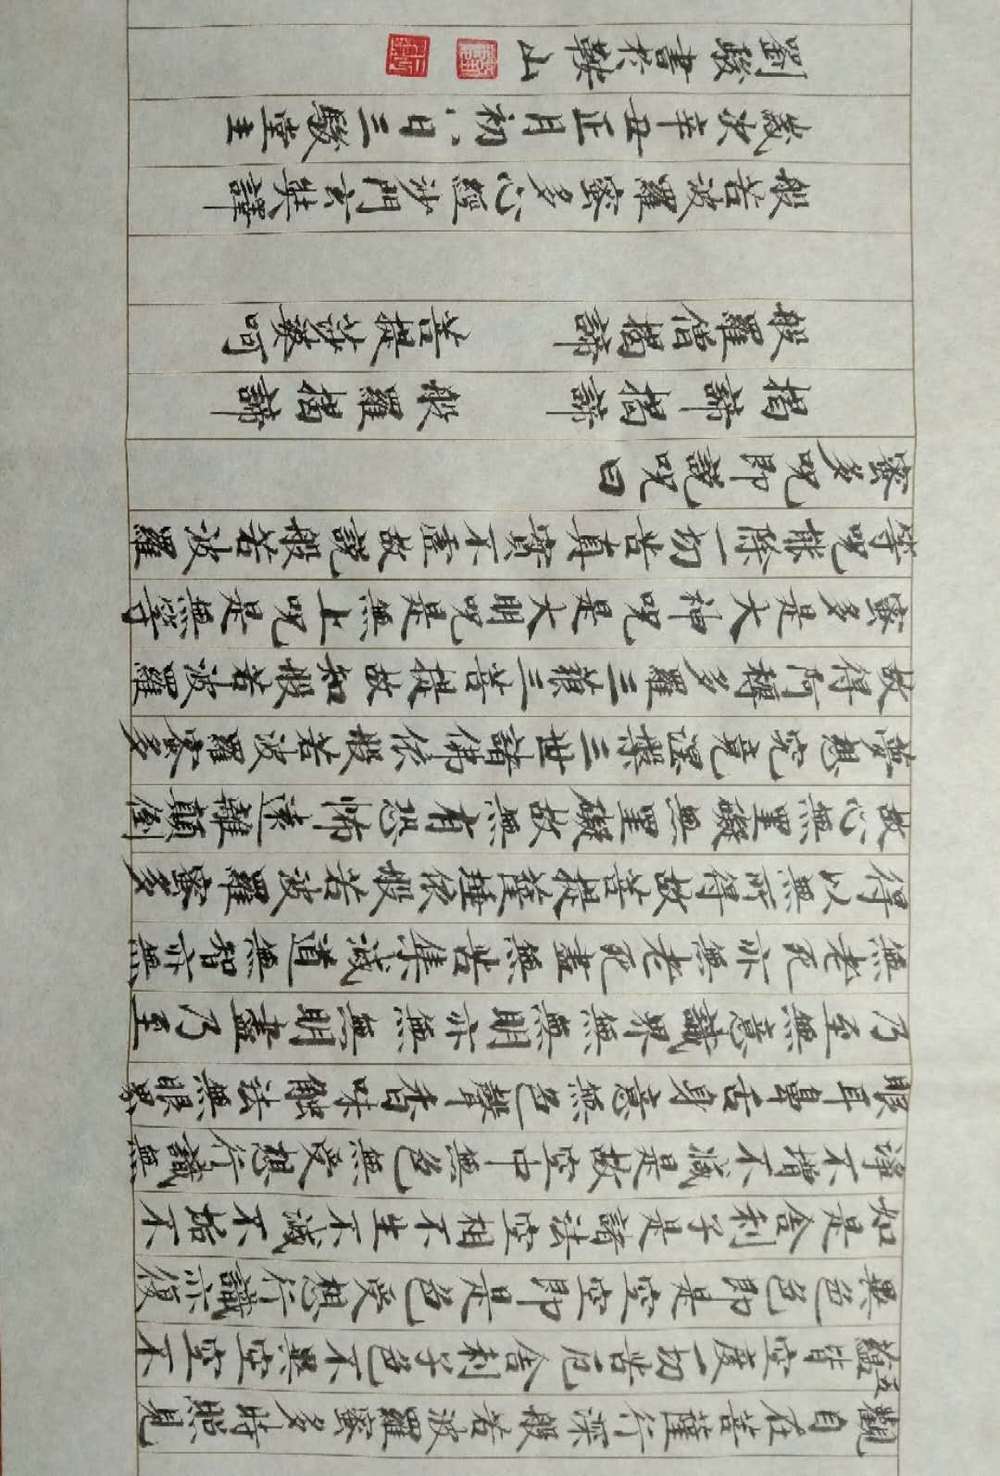 觀自在菩薩行深般若波羅蜜多時照見
五蘊皆空度一切苦厄舍利子色不異空空不
異色色即是空空即是色受想行識亦復
如是舍利子是諸法空相不生不滅不垢不
淨不增不減是故空中無色無受想行識無
眼耳鼻舌身意無色聲香味觸法無眼界
乃至無意識界無無明亦無無明盡乃至
無老死亦無老死盡無苦集滅道無智亦無
得以無所得故菩提薩埵依般若波羅蜜多
故心無罣礙無罣礙故無有恐怖遠離顛倒
夢想究竟涅槃三世諸佛依般若波羅蜜多
故得阿耨多羅三藐三菩提故知般若波羅
蜜多是大神呪是大明呪是無上呪是無等
等呪能除一切苦真實不虛故說般若波羅
蜜多呪即說呪曰
揭諦揭諦 般羅揭諦
般羅僧揭諦 菩提莎婆呵
般若波羅蜜多心經沙門玄奘譯
歲次辛丑正月初八日三駿堂主
劉駿書於鞍山